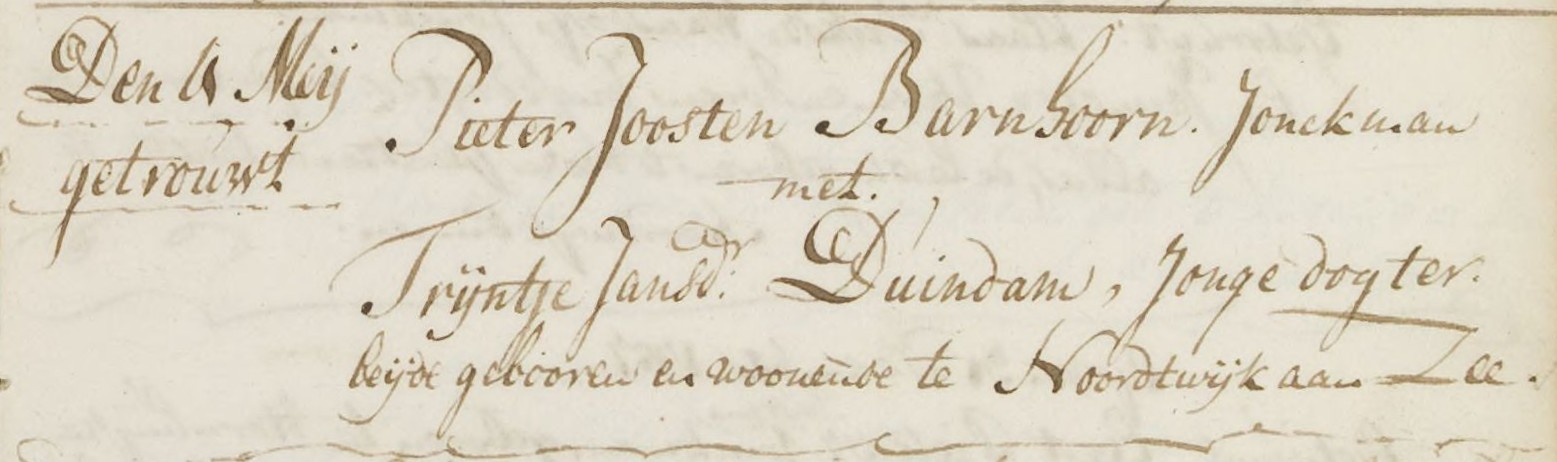 Den Meij
getrouwt
Pieter Joosten Barnhoorn. Jonckman
met.
Trijntje Jansdr. Duindam, Jonge dogter.
beijde gebooren en woonende te Noordtwijk aan Zee.